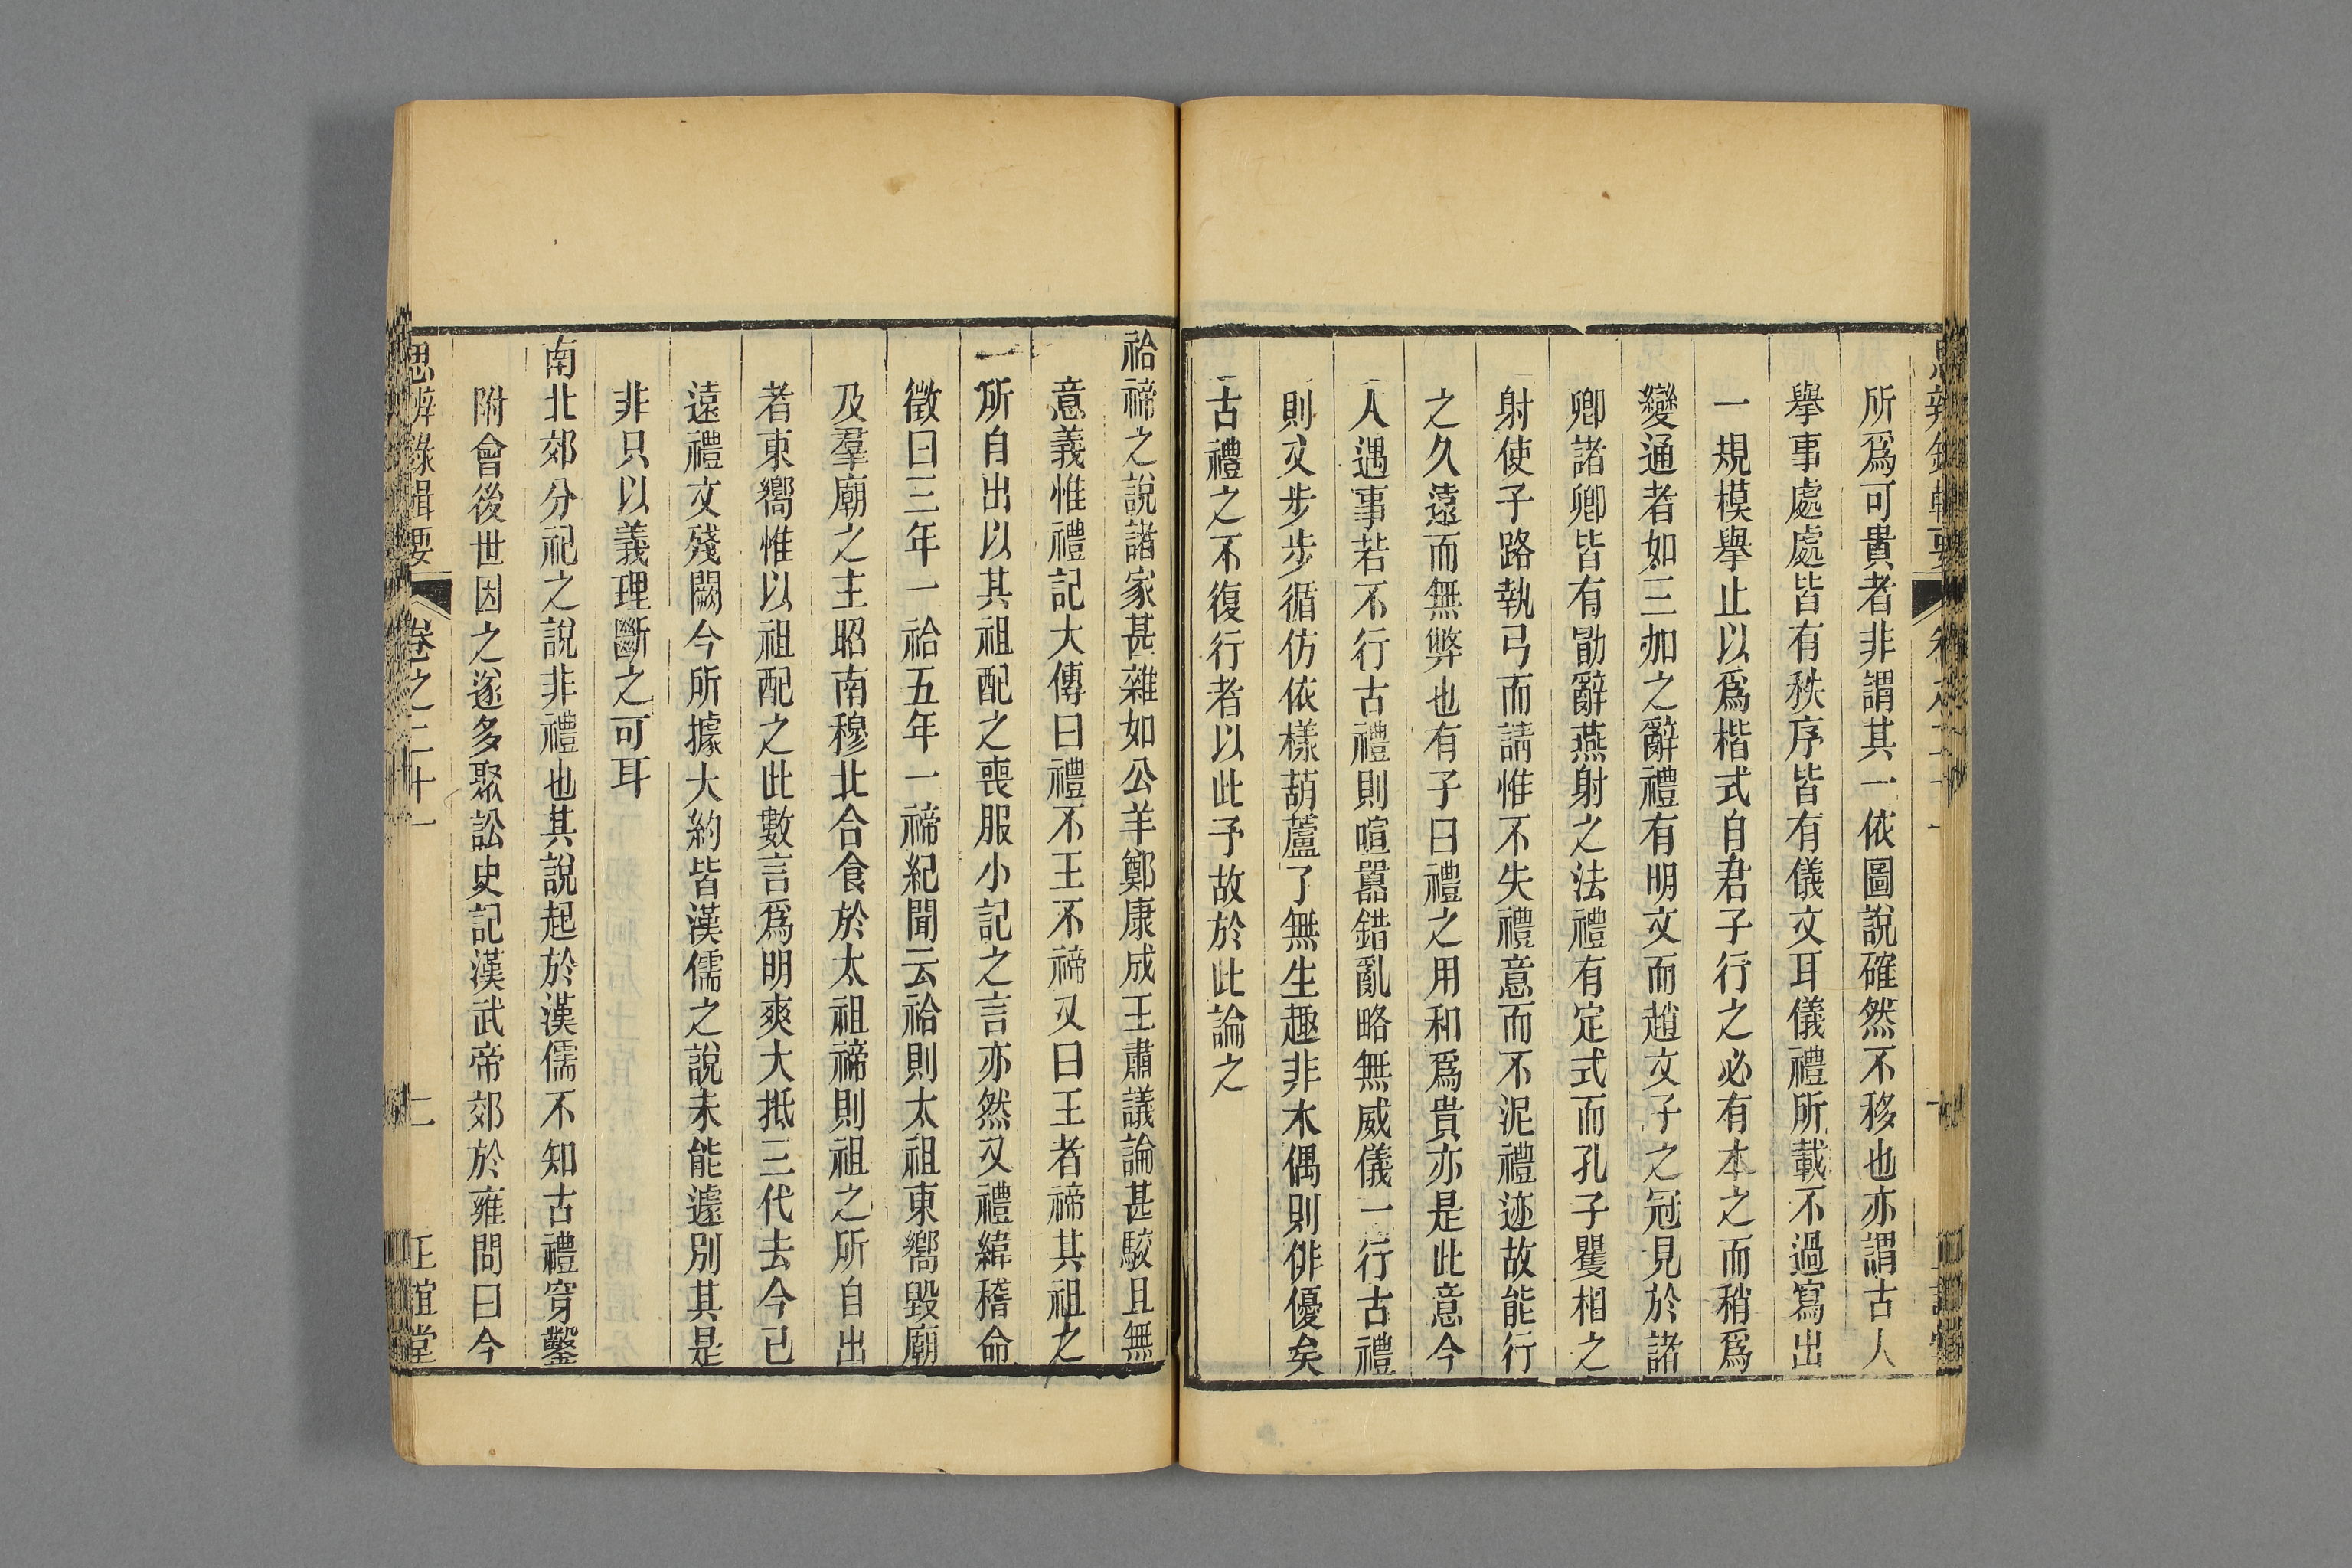 所爲可貴者非謂其一依圖說確然不移也亦謂古人
舉事處處皆有秩序皆有儀文耳儀禮所載不過寫出
一規模舉止以爲楷式自君子行之必有本之而稍爲
變通者如三加之辭禮有明文而趙文子之冠見於諸
卿諸卿皆有勖辭燕射之法禮有定式而孔子矍相之
射使子路執弓而請惟不失禮意而不泥禮迹故能行
之久遠而無弊也有子曰禮之用和爲貴亦是此意今
人遇事若不行古禮則喧囂錯亂略無威儀一行古禮
則又步步循仿依樣葫蘆了無生趣非木偶則俳優矣
古禮之不復行者以此予故於此論之
祫禘之說諸家甚雜如公羊鄭康成王肅議論甚駮且無
意義惟禮記大傳曰禮不王不禘又曰王者禘其祖之
所自出以其祖配之喪服小記之言亦然又禮緯稽命
徵曰三年一祫五年一禘紀聞云祫則太祖東嚮毀廟
及羣廟之主昭南穆北合食於太祖禘則祖之所自出
者東嚮惟以祖配之此數言爲明爽大抵三代去今已
遠禮文殘闕今所據大約皆漢儒之說未能遽別其是
非只以義理斷之可耳
南北郊分祀之說非禮也其說起於漢儒不知古禮穿鑿
附會後世因之遂多聚訟史記漢武帝郊於雍問曰今
思辨錄輯要 卷之二十一 二 正誼堂